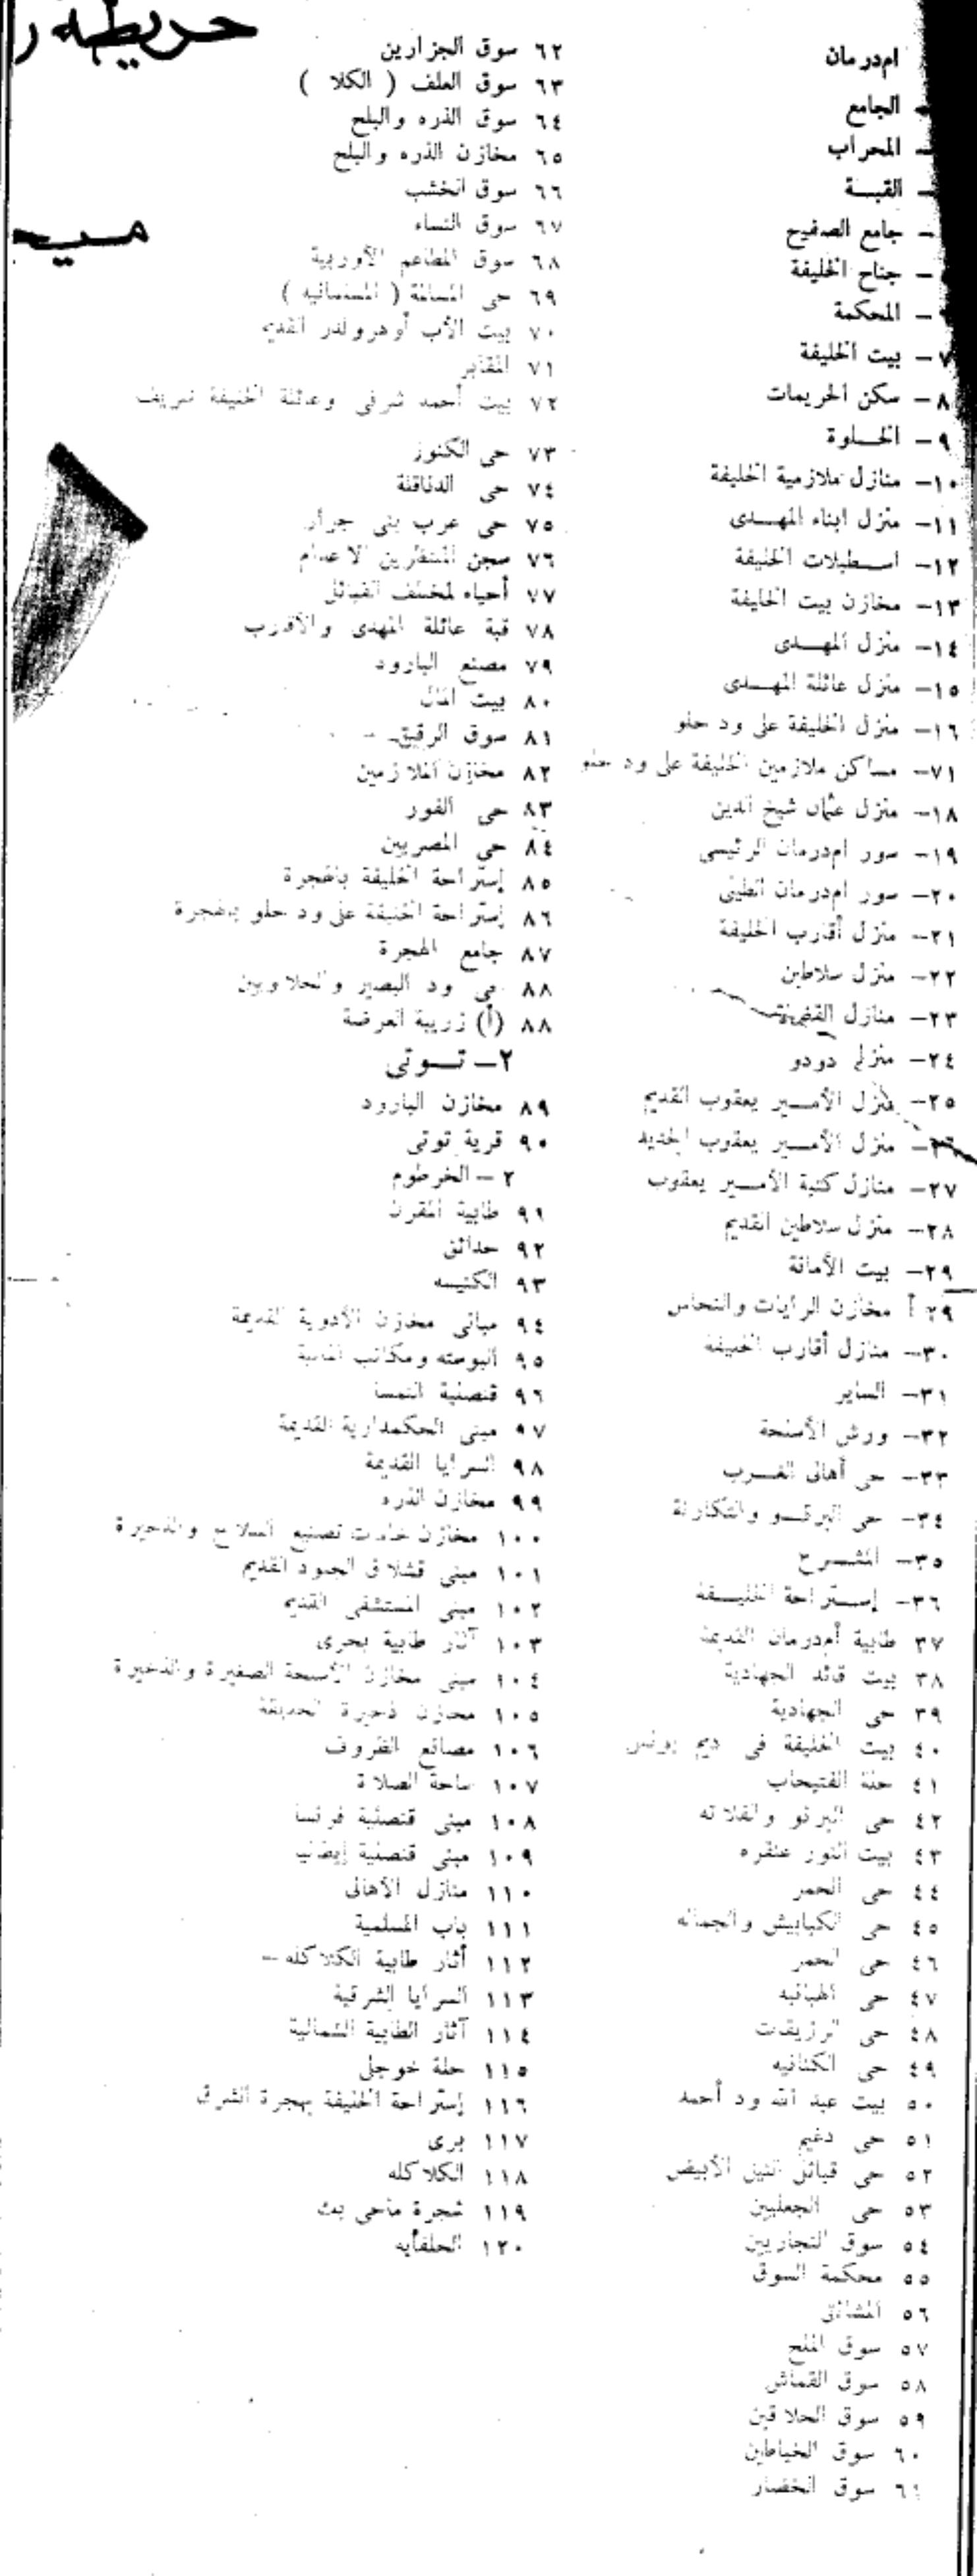 خريطة ر
ميـد
امدرمان
- الجامع
- المحراب
- القبـــة
- جامع الصفيح
- جناح الخليفة
- المحكمة
٧- بيت الخليفة
٨- سكن الحريمات
٩- الخـــلوة
١٠- منازل ملازمية الخليفة
١١- منزل ابناء المهـــدى
١٢- اســـطبلات الخليفة
١٣- مخازن بيت الخليفة
١٤- منزل المهـــدى
١٥- منزل عائلة المهـــدى
١٦- منزل الخليفة على ود حلو
٧١- مساكن ملازمين الخليفة على ود حلو
١٨- منزل عثمان شيخ الدين
١٩- سور امدرمان الرئيسى
٢٠- سور امدرمان الطينى
٢١- منزل أقارب الخليفة
٢٢- منزل سلاطين
٢٣- منازل القضاة
٢٤- منزل دودو
٢٥- منزل الأمـــير يعقوب القديم
٢٦- منزل الأمـــير يعقوب الجديد
٢٧- منازل كتبة الأمـــير يعقوب
٢٨- منزل سلاطين القديم
٢٩- بيت الأمانة
٢٩ أ مخازن الرايات والنحاس
٣٠- منازل أقارب الخليفة
٣١- الساير
٣٢- ورش الأسلحة
٣٣- حى أهالى الغـــرب
٣٤- حى البرقـــو والتكارنة
٣٥- المشـــرع
٣٦- إســـتراحة الخليـــفة
٣٧ طابية أمدرمان القديمة
٣٨ بيت قائد الجهادية
٣٩ حى الجهادية
٤٠ بيت الخليفة فى ديم يونس
٤١ حلة الفتيحاب
٤٢ حى البرنو والفلاته
٤٣ بيت النور عنقره
٤٤ حى الحمر
٤٥ حى الكبابيش والجماله
٤٦ حى الحمر
٤٧ حى الهبانيه
٤٨ حى الرزيقات
٤٩ حى الكنانيه
٥٠ بيت عبد الله ود أحمد
٥١ حى دغيم
٥٢ حى قبائل النيل الأبيض
٥٣ حى الجعليين
٥٤ سوق النجاريين
٥٥ محكمة السوق
٥٦ المشانق
٥٧ سوق الملح
٥٨ سوق القماش
٥٩ سوق الحلاقين
٦٠ سوق الخياطين
٦١ سوق الخضار
٦٢ سوق الجزارين
٦٣ سوق العلف ( الكلا )
٦٤ سوق الذره والبلح
٦٥ مخازن الذره والبلح
٦٦ سوق الخشب
٦٧ سوق النساء
٦٨ سوق المطاعم الأوربية
٦٩ حى المسالمة ( المسلمانيه )
٧٠ بيت الأب أوهرولدر القديم
٧١ المقابر
٧٢ بيت أحمد شرفى وعائلة الخليفة شريف
٧٣ حى الكنوز
٧٤ حى الدناقلة
٧٥ حى عرب بنى جرار
٧٦ سجن المنتظرين الاعدام
٧٧ أحياء لمختلف القبائل
٧٨ قبة عائلة المهدى والأقارب
٧٩ مصنع البارود
٨٠ بيت المال
٨١ سوق الرقيق
٨٢ مخازن الملازمين
٨٣ حى الفور
٨٤ حى المصريين
٨٥ إستراحة الخليفة بالهجرة
٨٦ إستراحة الخليفة على ود حلو بالهجرة
٨٧ جامع الهجرة
٨٨ حى ود البصير والحلاويين
٨٨ (أ) زريبة العرضة
٢- تـــوتى
٨٩ مخازن البارود
٩٠ قرية توتى
٢ - الخرطوم
٩١ طابية المقرن
٩٢ حدائق
٩٣ الكنيسه
٩٤ مبانى مخازن الأدوية القديمة
٩٥ البوسته ومكاتب
٩٦ قنصلية النمسا
٩٧ مبنى الحكمدارية القديمة
٩٨ السرايا القديمة
٩٩ مخازن الذره
١٠٠ مخازن خامات تصنيع السلاح والذخيرة
١٠١ مبنى قشلاق الجنود القديم
١٠٢ مبنى المستشفى القديم
١٠٣ آثار طابية بحرى
١٠٤ مبنى مخازن الأسلحة الصغيرة والذخيرة
١٠٥ مخازن ذخيرة الحديقة
١٠٦ مصانع الظروف
١٠٧ ساحة الصلاة
١٠٨ مبنى قنصلية فرنسا
١٠٩ مبنى قنصلية إيطاليا
١١٠ منازل الأهالى
١١١ باب المسلمية
١١٢ أثار طابية الكلاكله -
١١٣ السرايا الشرقية
١١٤ آثار الطابية الشمالية
١١٥ حلة خوجلى
١١٦ إستراحة الخليفة بهجرة الشرق
١١٧ برى
١١٨ الكلاكله
١١٩ شجرة ماحى بك
١٢٠ الحلفأيه